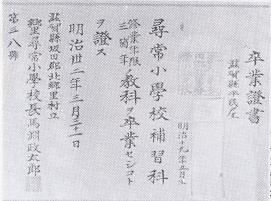 卒業證書
滋賀縣平民
明治十九年五月生
尋常小學校補習科
修業年限
三箇年ノ教科ヲ卒業セシコト
ヲ證ス
明治卅二年三月三十一日
滋賀縣坂田郡北郷里村立
郷里尋常小學校長馬淵政太郎
第三八號